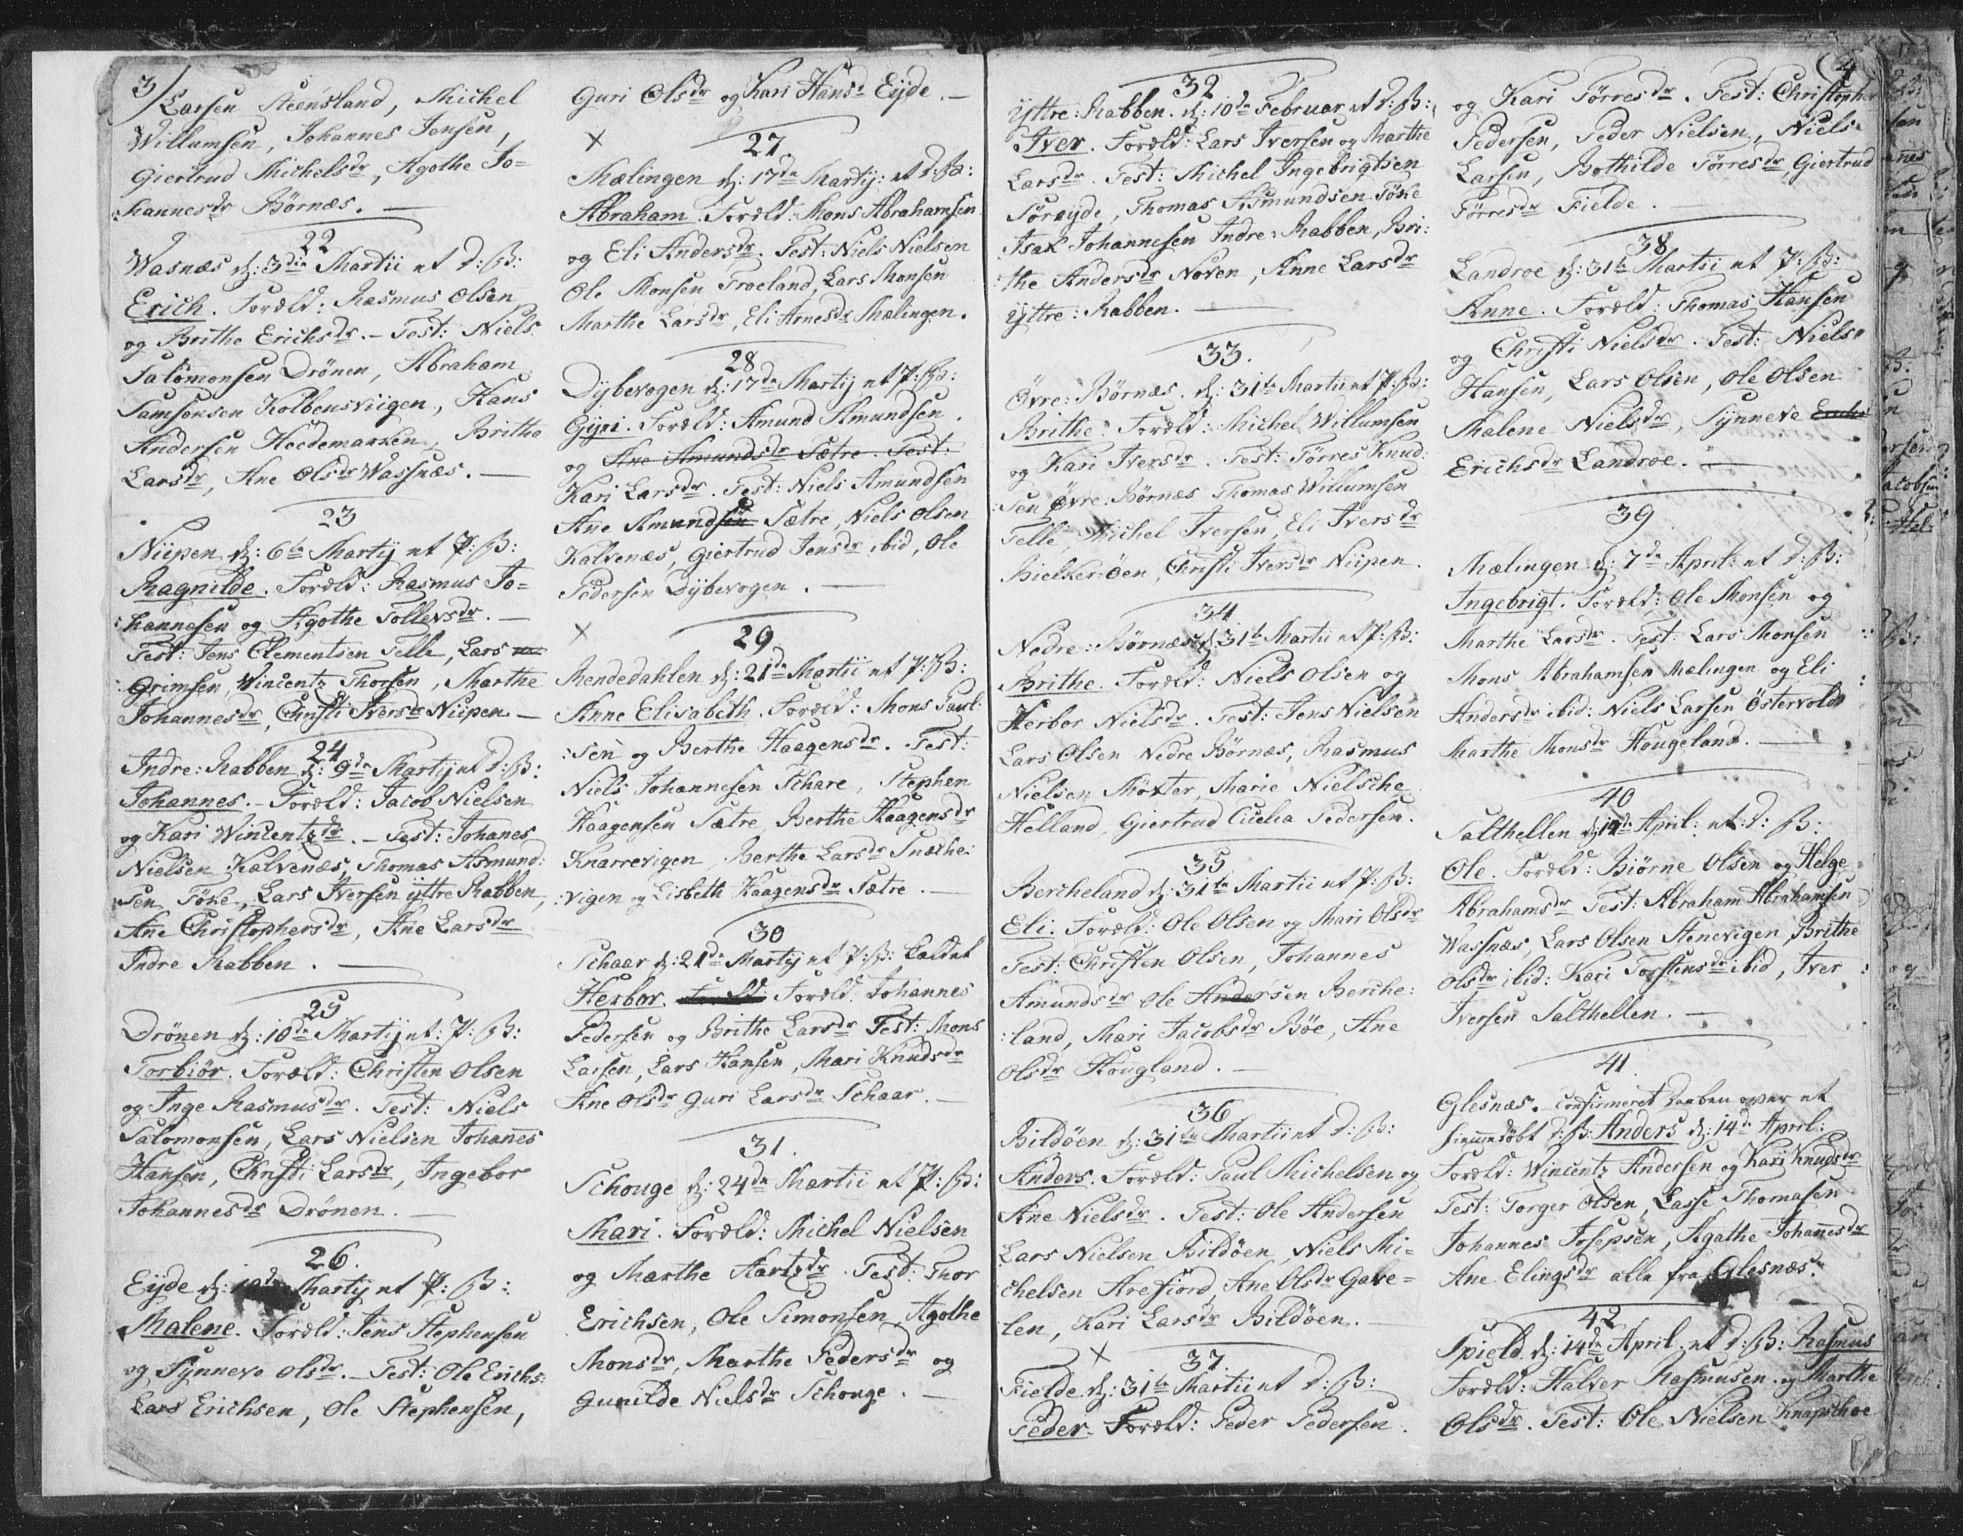 3/
Larsen Steensland, Michel
Willumsen, Johannes Jensen,
Giertrud Michelsdr, Agothe Jo-
hannesdr Børnæs. —
22
Wasnæs d: 3die Martii et d: B:
Erich. Foræld: Rasmus Olsen
og Brithe Erichsdr. - Test: Niels
Salomonsen Drönen, Abraham
Samsonsen Kolbensviigen, Hans
Andersen Heedemarken, Brithe
Larsdr, Ane Olsdr Wassnæs. —
23
Niipen d: 6te Martij et P: B:
Ragnilde. Foræld: Rasmus Jo-
hannesen og Agothe Tollevsdr. —
Test: Jens Clementsen Telle, Lars
Grimsen, Wincentz Thorsen, Marthe
Johannesdr, Christi Iversdr Niipen —
24
Indre: Rabben d: 9de Martij et d: B:
Johannes. - Foræld: Jacob Nielsen
og Kari Wincentzdr. - Test: Johanes
Nielsen Kalvenæs, Thomas Asmund:
sen Töke, Lars Iversen ÿttre Rabben,
Ane Christophersdr, Ane Larsdr
Indre Rabben. —
25
Drönen d: 10de Martij et: P: B:
Torbiör. Foræld: Christen Olsen
og Inge Rasmusdr. Test: Niels
Salomonsen, Lars Nielsen Johanes
Hansen, Christi Larsdr, Ingebor
Johannesdr Drönen. —
26.
Eyde d: Martij et P: B:
Malene. Foræld: Jens Stephensen
og Synneve Olsdr. - Test: Ole Erichs:
Lars Erichsen, Ole Stephensen,
Guri Olsdr og Kari Hansd Eyde. —
X
27.
Mælingen d: 17de Martij: et d: B:
Abraham. Foræld: Mons Abrahamsen
og Eli Andersdr. Test: Niels Nielsen
Ole Monsen Troeland, Lars Monsen
Marthe Larsdr, Eli Arnesdr Mælingen.
28
Dybevogen d: 17de Martij et P: B:
Gÿri. Foræld: Amund Amundsen
og Ane Amundsdr Sætre. Test:
Kari Larsdr. Test: Niels Amundsen
Ane Amundsen Sætre, Niels Olsen
Kalvenæs, Giertrud Jensdr ibid, Ole
Pedersen Dÿbevogen. —
X
29
Rendedahlen d: 21de Martii et P: B:
Anne Elisabeth. Foræld: Mons Paul:
:sen og Berthe Haagensdr. Test:
Niels Johannesen Schare, Stephen
Haagensen Sætre, Berthe Haagensdr
Knarrevigen, Berthe Larsdr Snække:
:vigen og Lisbeth Haagensdr Sætre. —
30
Schaar d: 21de Martij et P: B: kaldet
Herbor. Foræld: Johannes
Pedersen og Brithe Larsdr Test: Mons
Larsen, Lars Hansen, Mari Knudsdr
Ane Olsdr Guri Larsdr Schaar. —
31.
Schouge d: 24de Martii et P: B:
Mari. Foræld: Michel Nielsen
og Marthe Aartzdr. Test: Thor
Erichsen, Ole Simonsen, Agothe
Monsdr, Marthe Pedersdr og
Gunilde Nielsdr Schouge. —
32
Yttre: Rabben. d: 10de Februar et d: B:
Iver. Foræld: Lars Iversen og Marthe
Larsdr. Test: Michel Ingebrigtsen
Söreyde, Thomas Asmundsen Töke
Isax Johannesen Indre: Rabben, Bri:
the Andersdr Noven, Anne Larsdr
Yttre: Rabben. —
33.
Övre: Börnæs. d: 31te Martii et P: B:
Brithe. Foræld: Michel Willumsen
og Kari Iversdr. Test: Törres Knud:
:sen Övre: Börnæs Thomas Willumsen
Telle Michel Iversen, Eli Iversdr
Bielker:öen, Christi Iversdr Niipen.
34
Nedre: Börnæs d: 31te Martii et P: B:
Brithe. Foræld: Niels Olsen og
Herbor Nielsdr. Test: Jens Nielsen
Lars Olsen Nedre Börnæs, Rasmus
Nielsen Möxter, Marie Nielsche
Helland, Giertrud Cicelia Pedersen.
35
Bercheland d: 31te Martii et P: B:
Eli. Foræld: Ole Olsen og Mari Olsdr
Test: Christen Olsen, Johannes
Amundsdr Ole Andersen Berche:
:land, Mari Jacobsdr Böe, Ane
Olsdr Hougland. —
36
Bildöen d: 31te Martii et d: B:
Anders. Foræld: Paul Michelsen og
Ane Nielsdr. Test: Ole Andersen
Lars Nielsen Bildöen, Niels Mi-
chelsen Arefiord, Ane Olsdr Gale-
ten, Kari Larsdr Bildöen. —
X
37.
Fielde d: 31te Martii et d: B:
Peder. Foræld: Peder Pedersen.
4
og Kari Törresdr. Test: Christopher
Pedersen, Peder Nielsen, Niels
Larsen, Bothilde Törresdr, Giertrud
Törresdr Fielde.
38
Landroe d: 31te Martii et P: B:
Anne. Foræld: Thomas Hansen
og Christi Nielsdr. Test: Niels
Hansen, Lars Olsen, Ole Olsen
Malene Nielsdr, Synneve
Erichsdr Landroe. —
39
Mælingen d: 7de April: et d: B:
Ingebrigt. Foræld: Ole Monsen og
Marthe Larsdr. Test: Lars Monsen
Mons Abrahamsen Mælingen og Eli
Andersdr ibid: Niels Larsen Östervold
Marthe Monsdr Hougeland. —
40
Salthellen d: April: et: d: B:
Ole. Foræld: Biörne Olsen og Helge
Abrahamsdr Test: Abraham Abrahamsen
Wassnæs, Lars Olsen Stenevigen, Brithe
Olsdr ibid: Kari Torstensdr ibid, Iver
Iversen Salthellen. —
41.
Glesnæs. Confirmeret Daaben over et
hiemmedöbt d: B: Anders d: 14de April:
Foræld: Wincentz Andersen og Kari Knudsdr
Test: Torger Olsen, Lasse Thomasen
Johannes Josepsen, Agathe Johannesdr
Ane Elingsdr alle fra Glesnæs.
42
Spield d: 14de April et d: B: Rasmus
Foræld: Halver Rasmusen og Marthe
Olsdr. Test: Ole Nielsen Knapschoe